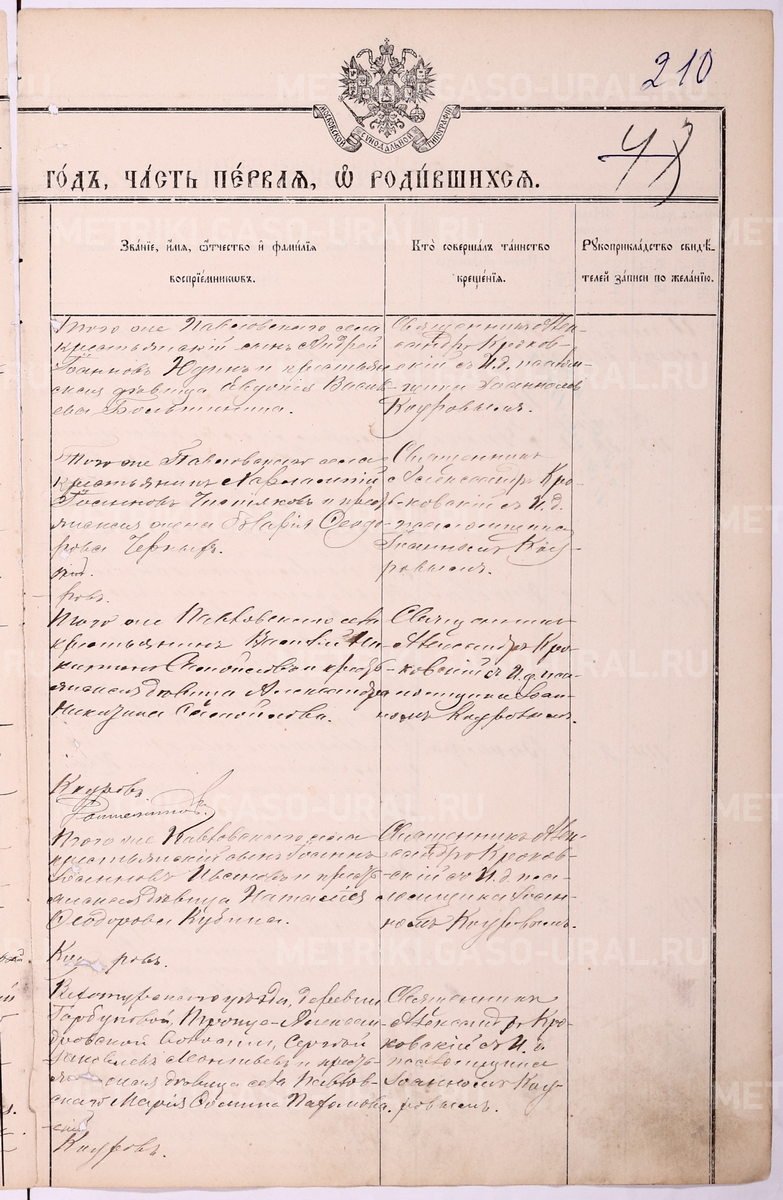 210
МОСКОВСКОЙ СѴНОДАЛЬНОЙ ТИПОГРАФІИ
43
ГО́ДЪ, ЧА́СТЬ ПЕ́РВАЯ, Ѽ РОДИ́ВШИХСЯ.
Зва́ніе, и́мя, о́тчество и фами́лія
воспріе́мниковъ.
Кто̀ соверша́лъ та́инство
креще́нія.
Рукоприкла́дство свидѣ́-
телей за́писи по жела́нію.
Того же Павловскаго села
крестьянскій сынъ Андрей
Іоанновъ Юдинъ и крестьян-
ская дѣвица Евдокія Василь-
ева
Священникъ Алек-
сандръ Кроков-
скій съ И. д. псалом-
щика Іоанномъ
Кауровымъ.
Того же Павловскаго села
крестьянинъ Харлампій
Іоанновъ и кресть-
янская жена Марія Ѳеодо-
рова Черныхъ.
Священникъ
Александръ Кро-
ковскій съ И. д.
псаломщика
Іоанномъ Кау-
ровымъ.
ровъ.
Того же Павловскаго села
крестьянинъ Василій Ни-
китинъ Самойловъ и кресть-
янская дѣвица Александра
Никитина Самойлова.
Священникъ
Александръ Кро-
ковскій съ И. д. пса-
ломщика Іоан-
номъ Кауровымъ.
Кауровъ.
Того же Павловскаго села
крестьянскій сынъ Іоаннъ
Іоанновъ Ивановъ и кресть-
янская дѣвица Наталія
Ѳеодорова Кубина.
Священникъ Алек-
сандръ Кроков-
скій съ И. д. пса-
ломщика Іоан-
номъ Кауровымъ.
Кауровъ.
Верхотурскаго уѣзда, деревни
Горбуновой, Троице-Алексан-
дровской волости, Сергѣй
Яковлевъ Леонтьевъ и кресть-
янская дѣвица села Павлов-
скаго Марія Ѳомина Пахомова.
Священникъ
Александръ Кро-
ковскій съ И. д.
псаломщика
Іоанномъ Кау-
ровымъ.
Кауровъ.
METRIKI.GASO-URAL.RU